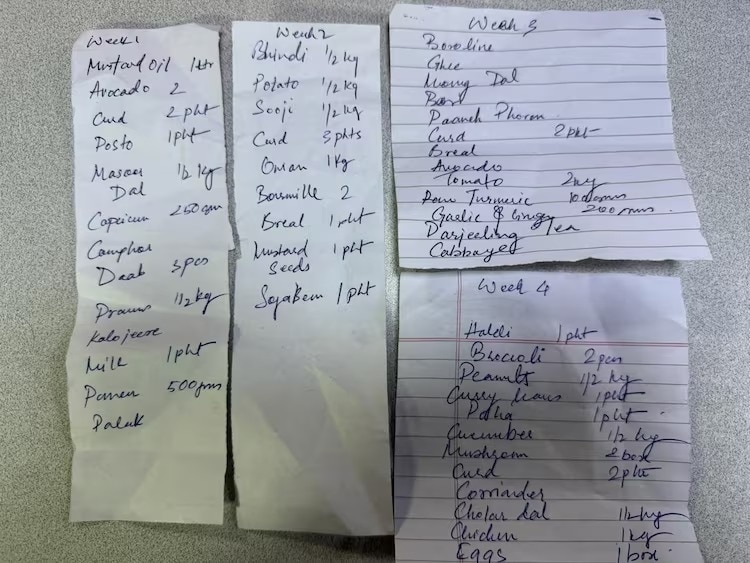 Week 1
Mustard Oil 1 ltr
Avocado 2
Curd 2 pkt
Posto 1 pkt
Masoor 1/2 kg
Dal
Capsicum 250 gm
Camphor
Daab 3 pcs
Prawns 1/2 kg
Kalojeere
Milk 1 pkt
Paneer 500 gms
Palak
Week 2
Bhindi 1/2 kg
Potato 1/2 kg
Sooji 1/2 kg
Curd 3 pkts
Onion 1 Kg
Bournville 2
Bread 1 pkt
Mustard 1 pkt
Seeds
Soyabean 1 pkt
Week 3
Boroline
Ghee
Moong Dal
Paanch Phoron
Curd 2 pkt
Bread
Avocado
Tomato 2 kg
Raw Turmeric 100 gms
Garlic & Ginger 200 gms
Darjeeling Tea
Cabbage
Week 4
Haldi 1 pkt
Broccoli 2 pcs
Peanuts 1/2 kg
Curry leaves 1 pkt
Poha 1 pkt
Cucumber 1/2 kg
Mushroom 2 box
Curd 2 pkt
Corriander
Cholar dal 1/2 kg
Chicken 1 kg
Eggs 1 box